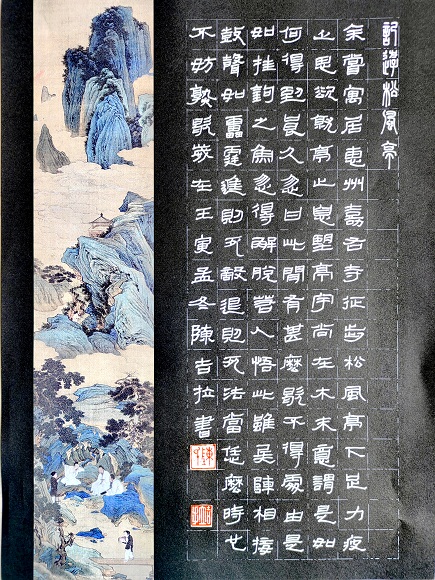 記遊松風亭
余嘗寓居惠州嘉祐寺縱步松風亭下足力疲
乏思欲就亭止息望亭宇尚在木末意謂是如
何得到良久忽曰此間有甚麼歇不得處由是
如挂鉤之魚忽得解脫若人悟此雖兵陣相接
鼓聲如雷霆進則死敵退則死法當恁麼時也
不妨熟歇歲在壬寅孟冬陳吉拉書